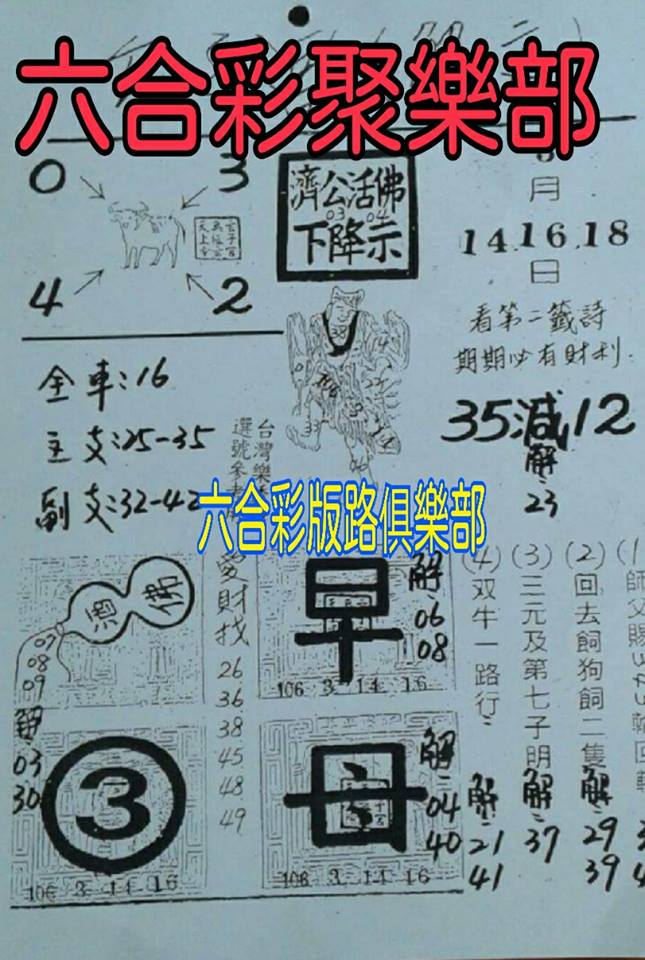 六合彩聚樂部
0
3
4
2
濟公活佛
03 04
下降示
月
14.16.18
日
看第二籤詩
期期必有財利.
35減12
解:
23
全車:16
主支:25-35
副支:32-42
台灣樂
選號參考
六合彩版路俱樂部
酒
佛
07
08
09
解:
03
30
愛財找
26
36
38
45
48
49
早
106 3 14 16
解:
06
08
③
106 3 14 16
母
106 3 14 16
解:
04
40
(1
師父賜
輪回轉
(2)回去飼狗飼二隻
解:
29
39
(3)三元及第七子明
解:
37
(4)双牛一路行:
解:
21
41